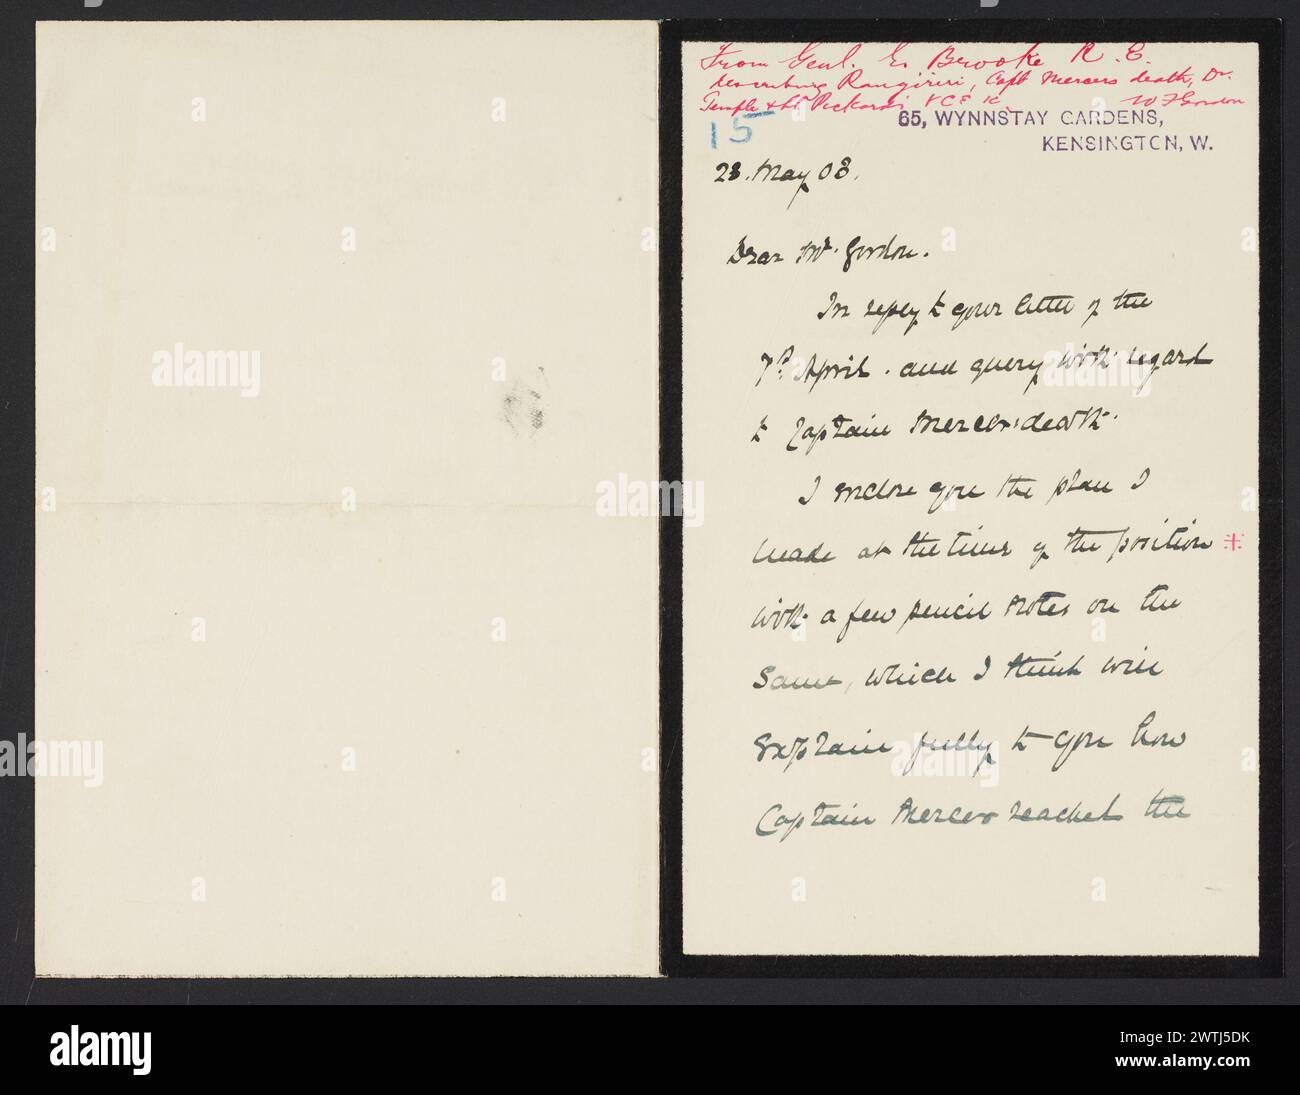 From Genl. E. Brooke R. E.
describing Rangiriri, Capt Mercers death, Dr.
Temple & Lt. Pickard's V C E
W F Gordon
15
65, WYNNSTAY GARDENS,
KENSINGTON, W.
28. May 08.
Dear Mr. Gordon.
In reply to your letter of the
7th April. and query with regard
to Captain Mercer's death.
I enclose you the plan I
made at the time of the position
with a few pencil notes on the
same, which I think will
explain fully to you how
Captain Mercer reached the
alamy
Image ID: 2WTJ5DK
www.alamy.com